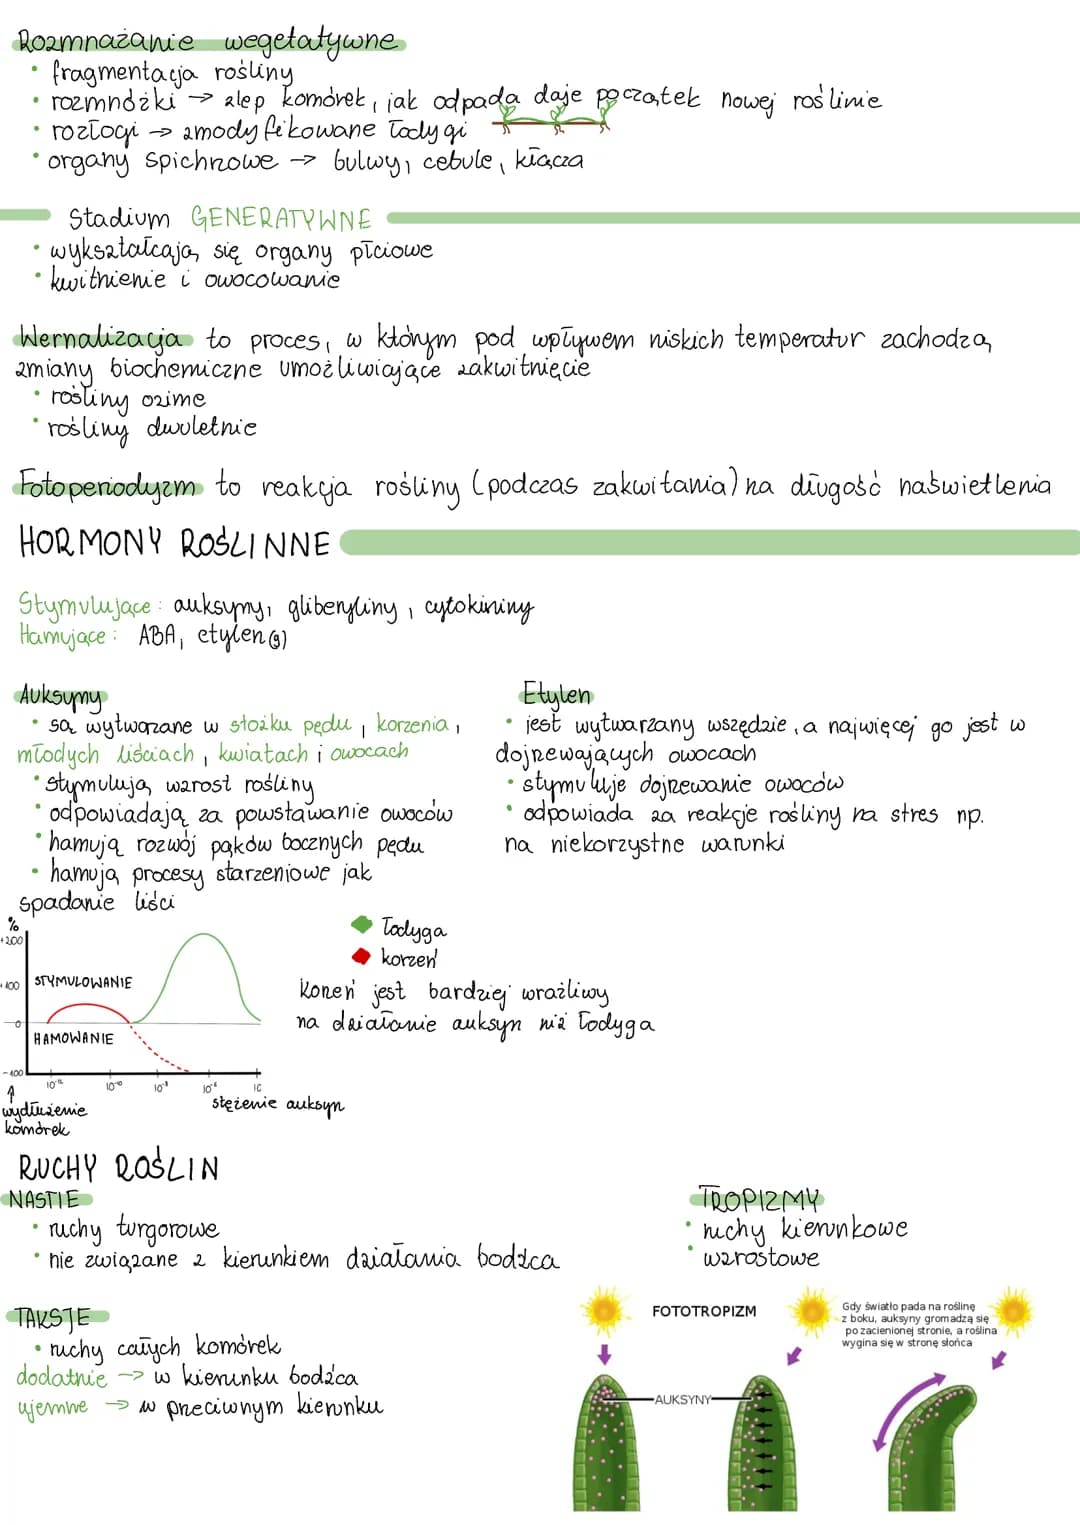 Rozmnażanie wegetatywne
• fragmentacja rośliny
• rozmnóżki → zlep komórek, jak odpada daje początek nowej roślinie
• rozłogi → zmodyfikowane łodygi
• organy spichrzowe → bulwy, cebule, kłącza
Stadium GENERATYWNE
• wykształcają się organy płciowe
• kwitnienie i owocowanie
Wernalizacja to proces, w którym pod wpływem niskich temperatur zachodzą
zmiany biochemiczne umożliwiające zakwitnięcie
• rośliny ozime
• rośliny dwuletnie
Fotoperiodyzm to reakcja rośliny (podczas zakwitania) na długość naświetlenia
HORMONY ROŚLINNE
Stymulujące: auksyny, gliberyliny, cytokininy
Hamujące: ABA, etylen (g)
Auksyny
• są wytwarzane w stożku pędu, korzenia,
młodych liściach, kwiatach i owocach
• stymulują wzrost rośliny
• odpowiadają za powstawanie owoców
• hamują rozwój pąków bocznych pędu
• hamują procesy starzeniowe jak
spadanie liści
Etylen
• jest wytwarzany wszędzie, a najwięcej go jest w
dojrzewających owocach
• stymuluje dojrzewanie owoców
• odpowiada za reakcje rośliny na stres np.
na niekorzystne warunki
%
+200
+100
0
-100
STYMULOWANIE
HAMOWANIE
10⁻¹²
10⁻¹⁰
10⁻⁸
10⁻⁶
10
↑
wydłużenie
komórek
stężenie auksyn
łodyga
korzeń
Korzeń jest bardziej wrażliwy
na działanie auksyn niż łodyga
RUCHY ROŚLIN
NASTIE
• ruchy turgorowe
• nie związane z kierunkiem działania bodźca
TROPIZMY
• ruchy kierunkowe
• wzrostowe
TAKSJE
• ruchy całych komórek
dodatnie → w kierunku bodźca
ujemne → w przeciwnym kierunku
FOTOTROPIZM
Gdy światło pada na roślinę
z boku, auksyny gromadzą się
po zacienionej stronie, a roślina
wygina się w stronę słońca
AUKSYNY